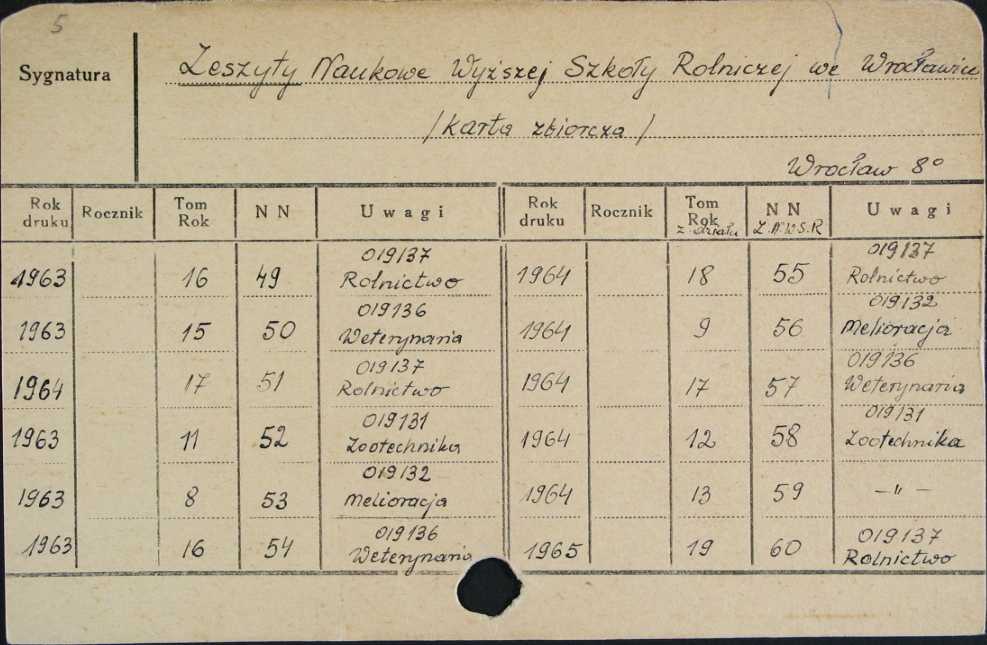 5
Sygnatura
Zeszyty Naukowe Wyższej Szkoły Rolniczej we Wrocławiu
/karta zbiorcza/
Wrocław 8°
Rok druku Rocznik Tom Rok NN Uwagi Rok druku Rocznik Tom Rok z działu NN Z.N.W.S.R Uwagi
1963 16 49 019137 Rolnictwo 1964 18 55 019137 Rolnictwo
1963 15 50 019136 Weterynaria 1964 9 56 019132 Melioracja
1964 17 51 019137 Rolnictwo 1964 17 57 019136 Weterynaria
1963 11 52 019131 Zootechnika 1964 12 58 019131 Zootechnika
1963 8 53 019132 Melioracja 1964 13 59 — " —
1963 16 54 019136 Weterynaria 1965 19 60 019137 Rolnictwo